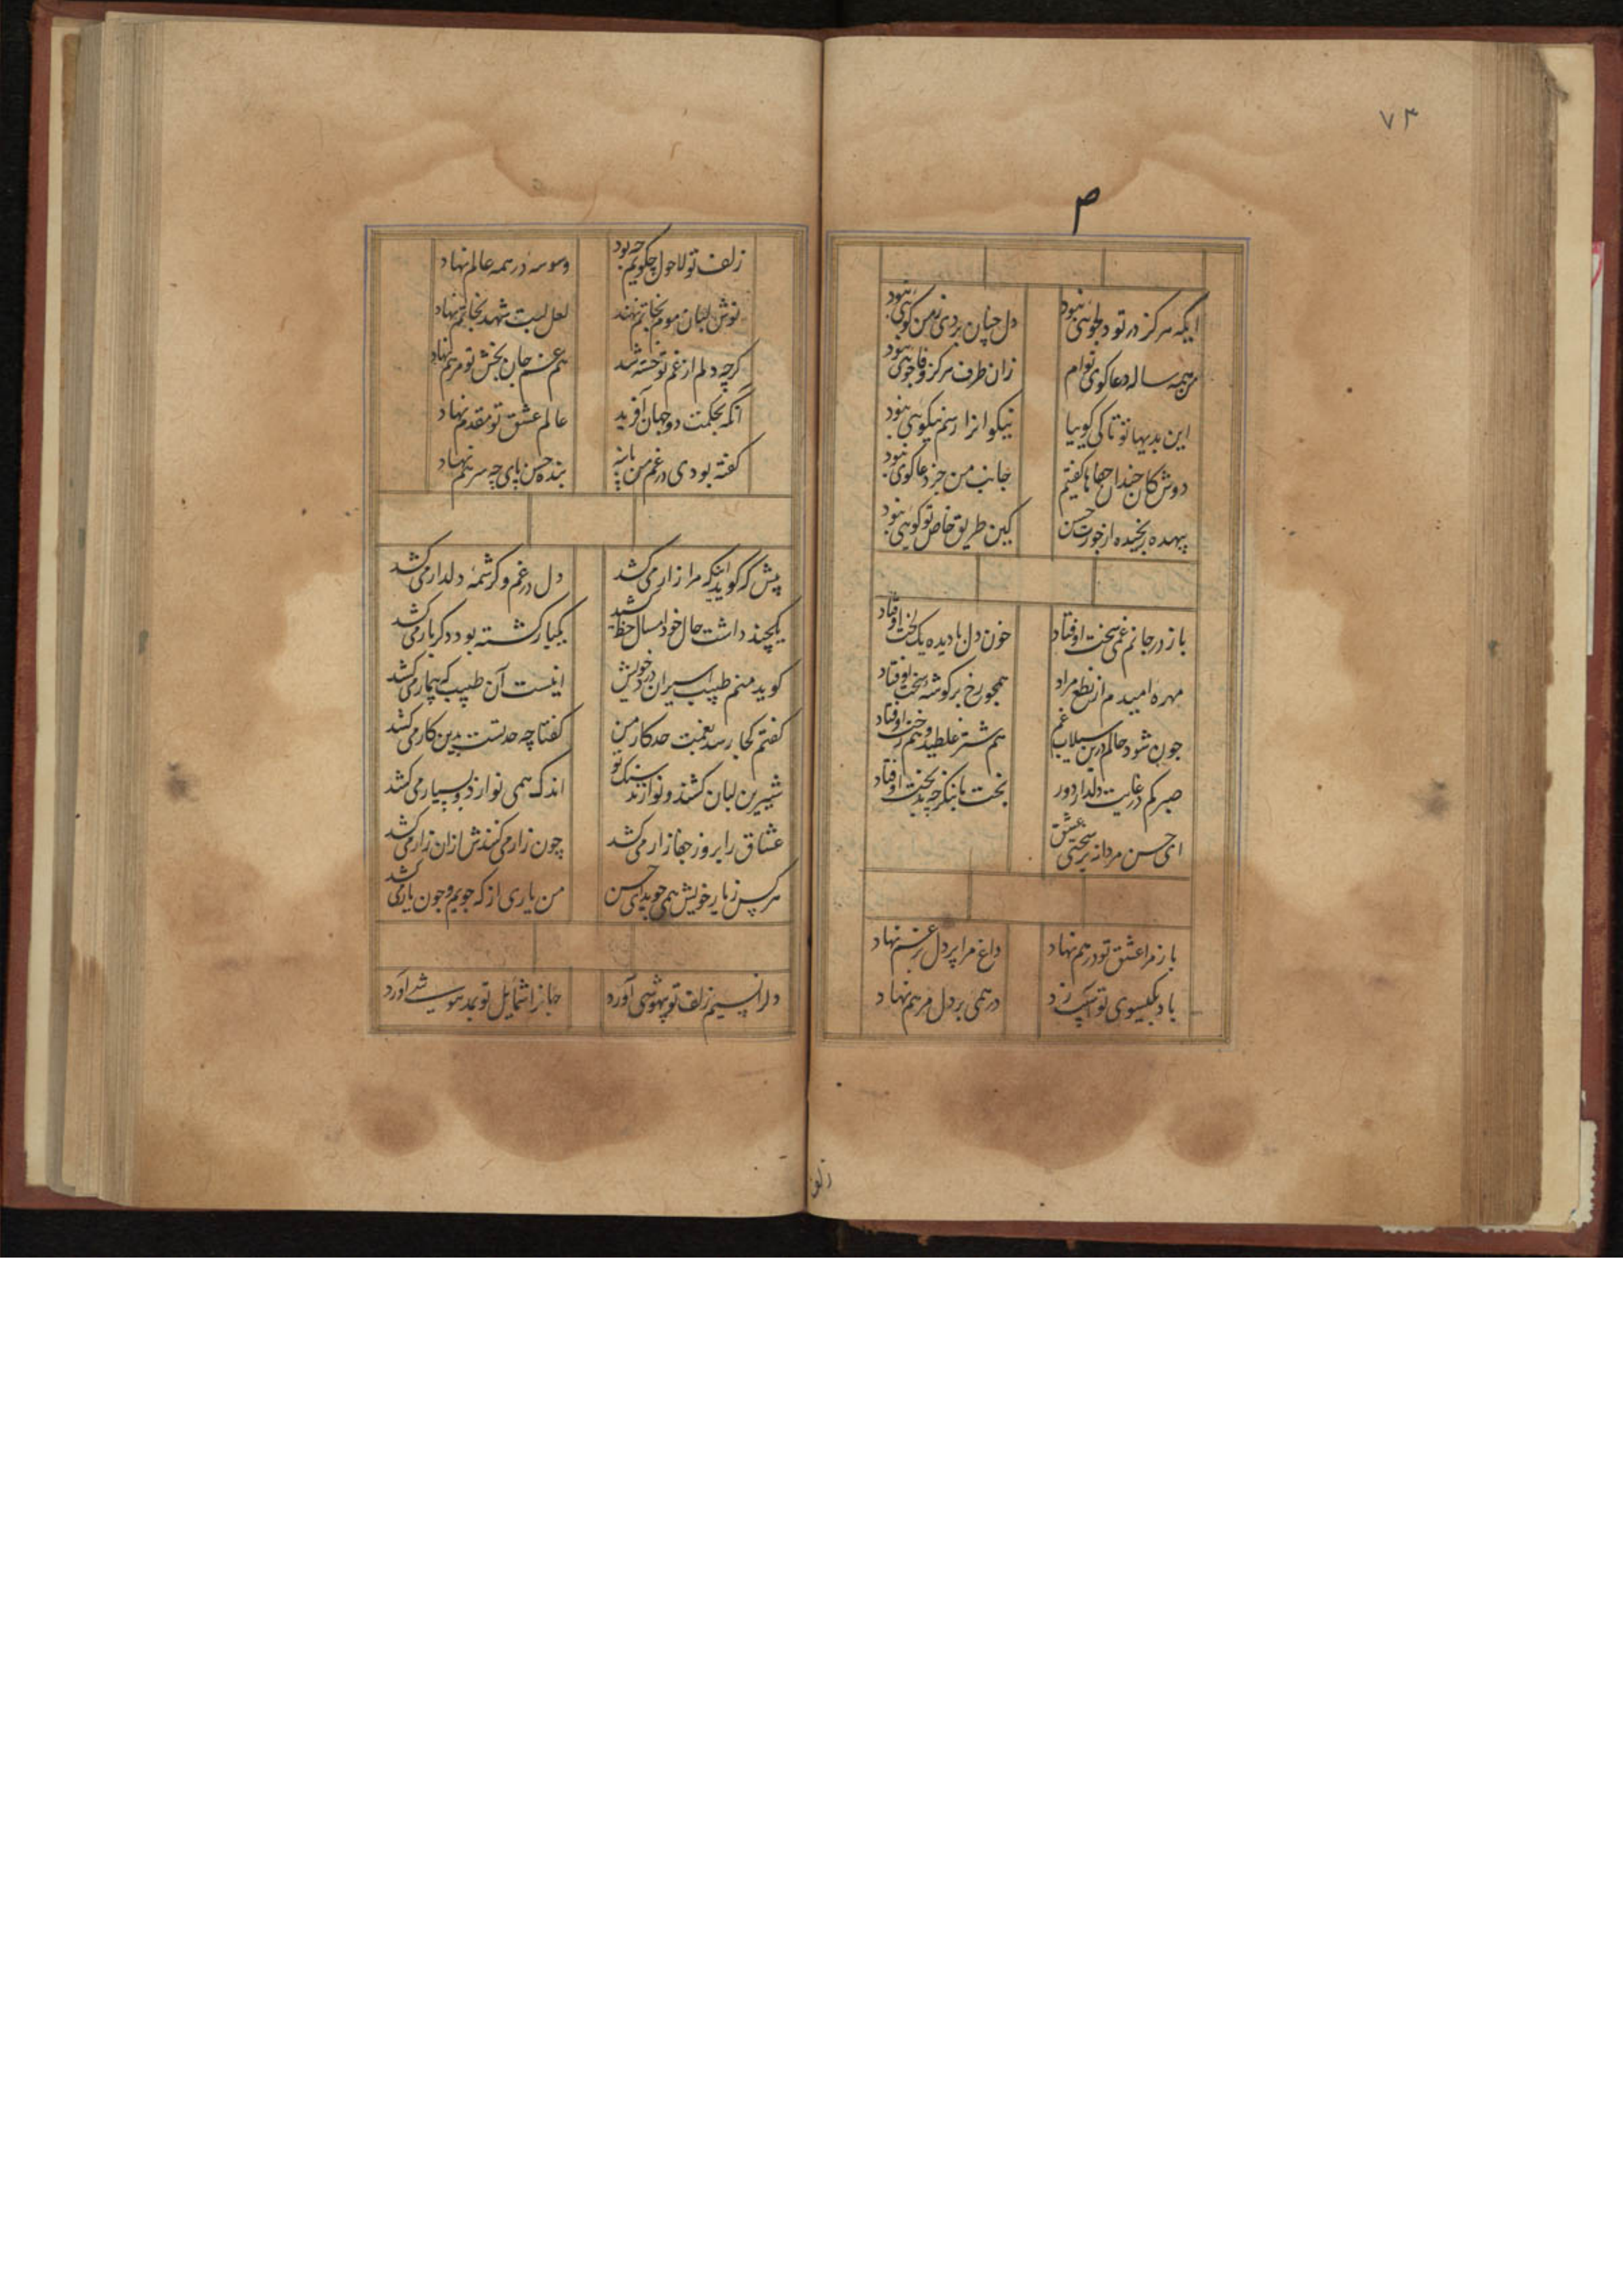 ۷۳
م
ایکه هرکز در تو دلجوئی نبود
دل چنان بردی ز من کوئی نبود
من همه ساله دعاکوی توام
زان طرف هرکز وفاجوئی نبود
این بدیها تو تا کی کوییا
نیکوانرا رسم نیکوئی نبود
دوش کان چندان جفاها کفتیم
جانب من جز دعاکوی نبود
بیهده رنجیده از خود حسن
کین طریق خاص تو کوئی نبود
باز در جانم غمی سخت اوفتاد
خون دل با دیده یک لخت اوفتاد
مهره امیدم از نطع مراد
همچو رخ بر کوشه تخت اوفتاد
چون شود حالم درین سیلاب غم
هم شتر غلطید و هم رخت اوفتاد
صبر کم در غایت دلدار دور
بخت با بنکر چه بدبخت اوفتاد
ای حسن مردانه بر سختی عشق
باز مرا عشق تو درهم نهاد
داغ مرا بر دل پرغم نهاد
باد بکیسوی تو آسیب زد
درهمی بر دل مرهم نهاد
زلف
زلف تو لاحول چکویم چه بود
وسوسه در همه عالم نهاد
نوش لبان موم بخاتم نهند
لعل لبت شهد بخاتم نهاد
کرچه دلم از غم تو خسته شد
هم غم جان بخش تو مرهم نهاد
آنکه بحکمت دو جهان آفرید
عالم عشق تو مقدم نهاد
کفته بودی در غم من پا بنه
بنده حسن پای چه سر هم نهاد
پیش که کوید اینکه مرا زار می کشد
دل در غم و کرشمه دلدار می کشد
یکچند داشت حال خود امسال خط کشید
یکبار کشته بود دکر بار می کشد
کوید منم طبیب اسیران درد خویش
اینست آن طبیب که بیمار می کشد
کفتم کجا رسد بغمت حد کار من
کفتا چه حدتست بدین کار می کشد
شیرین لبان کشند و نوازند سنک تو
اندک همی نوازد و بسیار می کشد
عشاق را بروز جفا زار می کشد
چون زار می کنندش ازان زار می کشد
هرکس ز یار خویش همی جوید ای حسن
من یاری از که جویم و چون یار می کشد
دلرا نسیم زلف تو بیهوشی آورد
جانرا شمایل تو بمدهوشی آورد